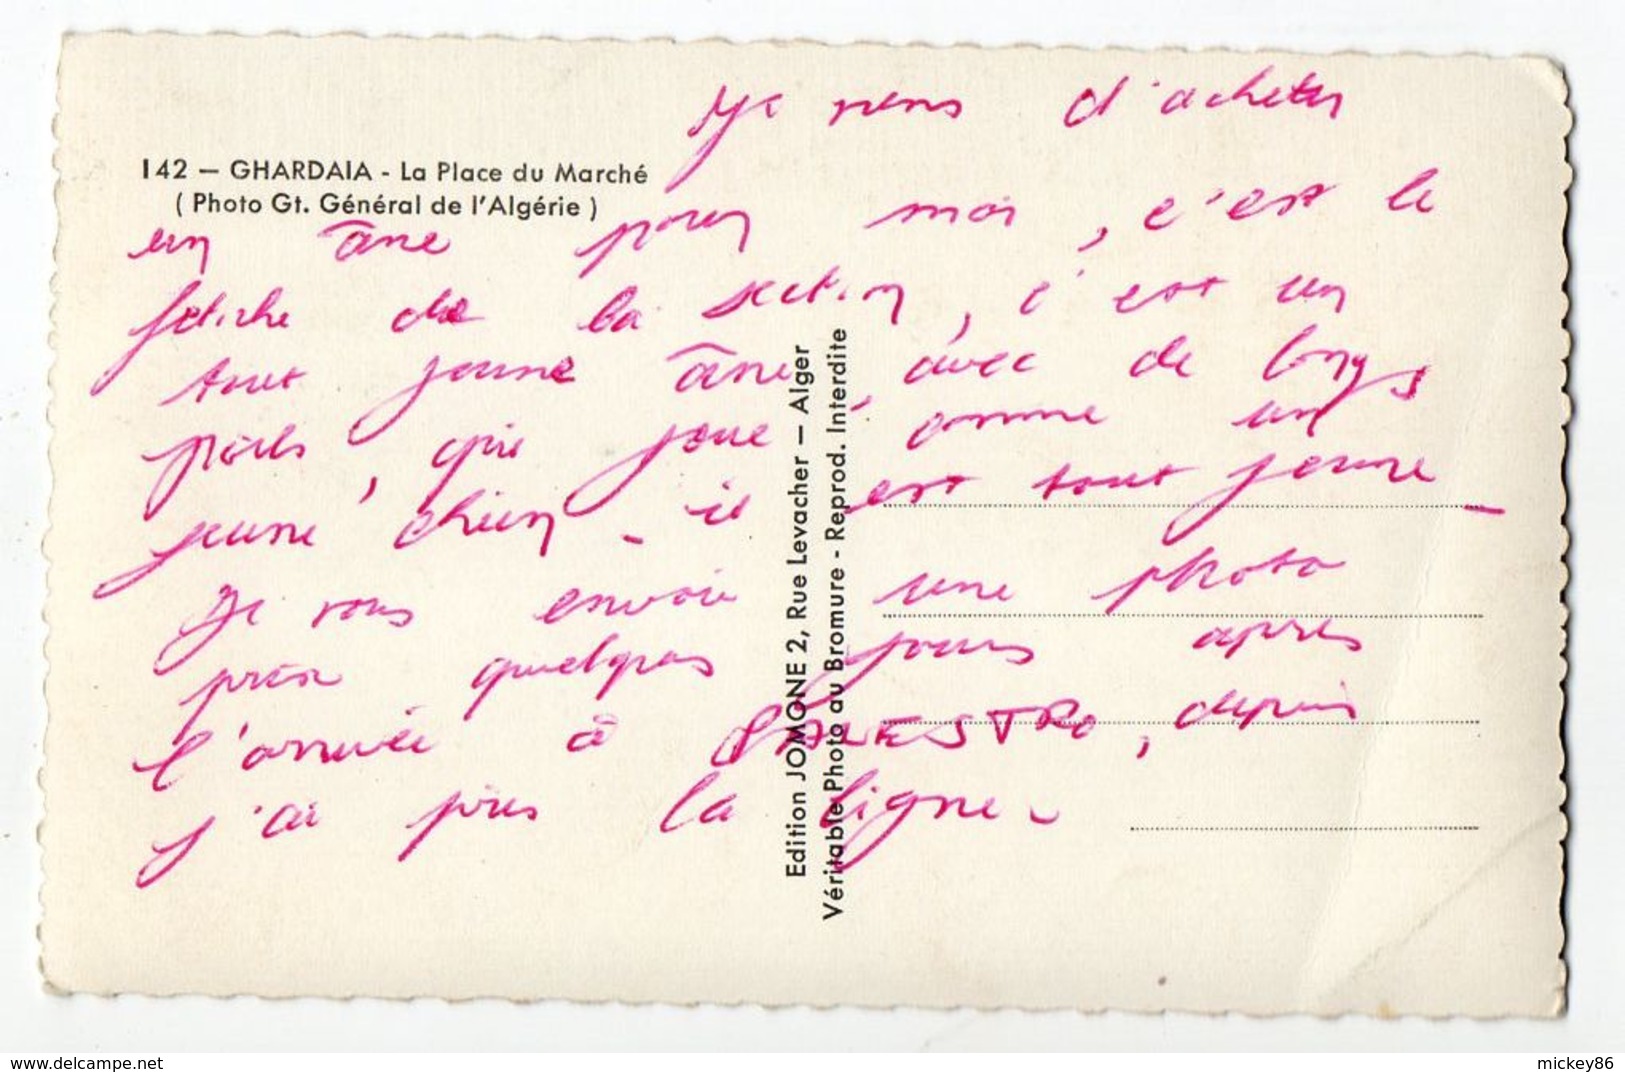 Je viens d'acheter
142 — GHARDAIA - La Place du Marché
( Photo Gt. Général de l'Algérie )
un âne pour moi, c'est le
fétiche de la section, c'est un
tout jeune âne, avec de longs
poils, qui joue comme un
jeune chien - il est tout jeune -
Je vous envoie une photo
prise quelques jours après
l'arrivée à PALESTRO, depuis
j'ai pris la ligne -
Edition JOMONE 2, Rue Levacher — Alger
Véritable Photo au Bromure - Reprod. Interdite
www.delcampe.net
mickey86